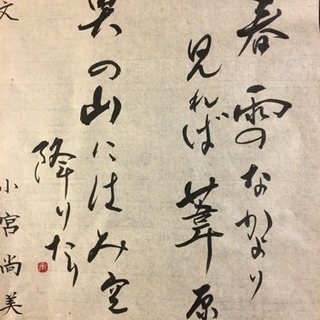 春雪のなかより
見れば葦原
奥の山にはみ空
降りたり
文 小宮尚美